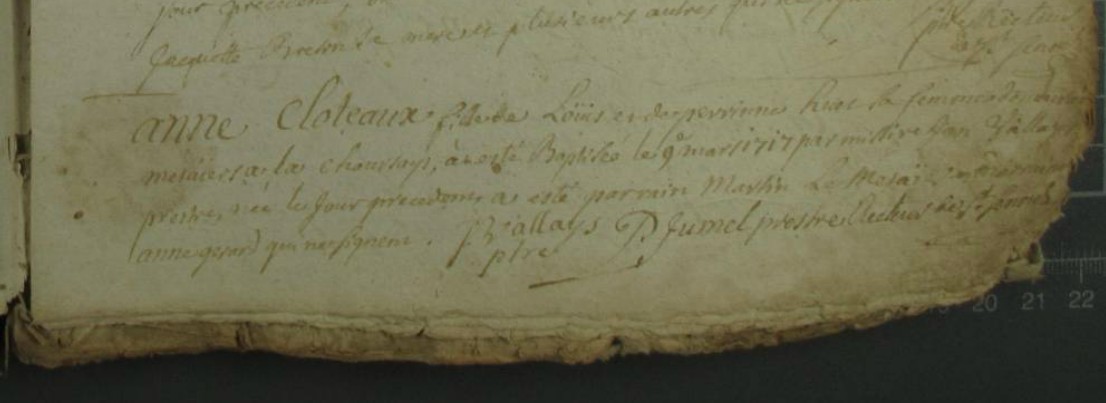 jour precedent,
Jacquette Bresin se mere et plusieurs autres qui ne signent ptre Recteur
anne Cloteaux fille de Loüis et de perrinne huet sa femme
metaiers a la choursays, a esté Baptisée le 9e mars 1717 par missire Jan Riallays
prestre, née le Jour precedent, a esté parrain Martin Le Metai
anne gerard qui ne signent. J Riallays P. Jumel prestre Recteur de
ptre
20 21 22